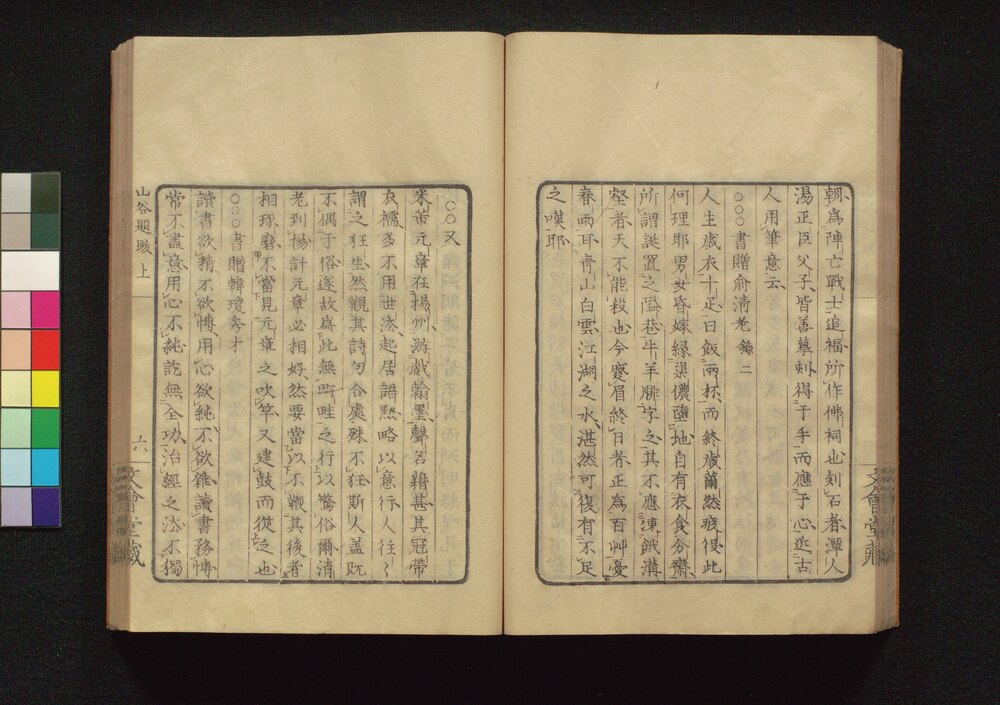 朝爲陣亡戰士追福所作佛祠也刻石者潭人
湯正臣父子皆善摹刻得于手而應于心近古
人用筆意云
○○○書贈俞清老 錄二
人生歲衣十疋日飯兩杯而終歲薾然疲役此
何理耶男女昏嫁緣渠儂墮地自有衣食分齊
所謂誕置之隘巷牛羊腓字之其不應凍餓溝
壑者天不能殺也今蹙眉終日者正爲百艸憂
春雨耳青山白雲江湖之水湛然可復有不足
之嘆耶
文會堂藏
○○又
米芾元章在揚州游戲翰墨聲名籍甚其冠帶
衣襦多不用世法起居語默略以意行人往〻
謂之狂生然觀其詩句合處殊不狂斯人蓋既
不偶于俗遂故爲此無町畦之行以驚俗爾清
老到揚計元章必相好然要當以不鞭其後者
相琢磨不當見元章之吹竽又建鼓而從之也
○○○書贈韓瓊秀才
讀書欲精不欲博用心欲純不欲雜讀書務博
常不盡意用心不純訖無全功治經之法不獨
山谷題跋 上
六
文會堂藏